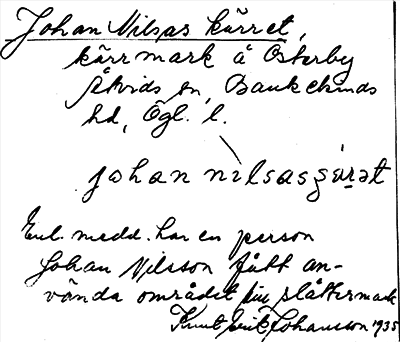 Johan Nilsas kärret,
kärrmark å Österby
Åtvids sn, Bankekinds
hd, Ögl. l.
johan nilsas ɕärət
Enl. medd. har en person
Johan Nilsson fått an-
vända området till slåttermark
Knut Erik Johansson 1935